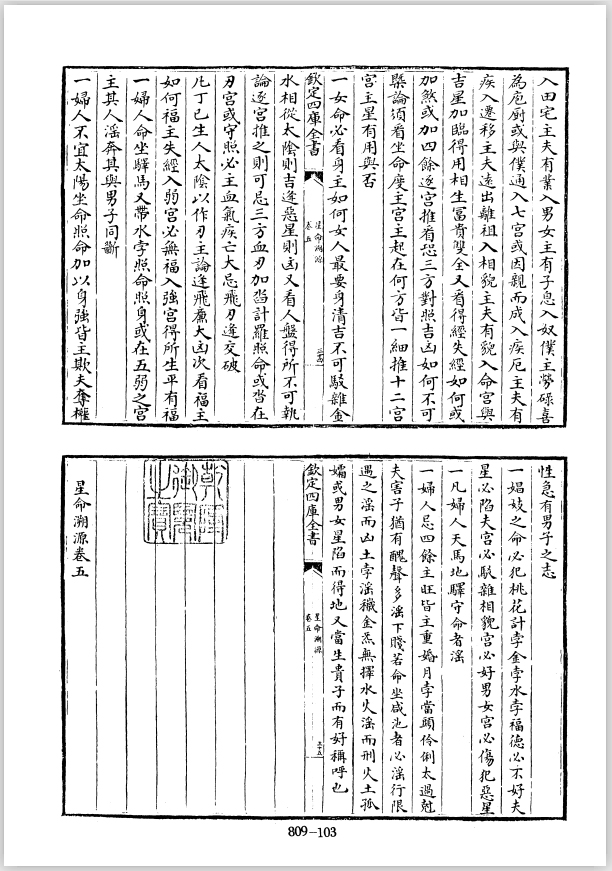 入田宅主夫有業入男女主有子息入奴僕主勞碌喜
為庖厨或與僕通入七宮或因親而成入疾厄主夫有
疾入遷移主夫遠出離祖入相貌主夫有貌入命宮與
吉星加臨得用相生富貴雙全又看得經失經如何或
加煞或加四餘逐宮推看恐三方對照吉凶如何不可
槩論須看坐命度主宮主起在何方皆一細推十二宮
宮主星有用與否
一女命必看身主如何女人最要身清吉不可駁雜金
欽定四庫全書
星命溯源
卷五
水相從太陰則吉逢惡星則凶又看人盤得所不可執
論逐宮推之則可忌三方血刃加臨計羅照命或沓在
刃宮或守照必主血氣疾亡大忌飛刃逢交破
凡丁巳生人太陰以作刃主論逢飛亷大凶次看福主
如何福主失經入弱宮必無福入強宮得所生平有福
一婦人命坐驛馬又帶水孛照命照身或在五弱之宮
主其人淫奔其與男子同斷
一婦人不宜太陽坐命照命加以身強皆主欺夫奪權
性急有男子之志
一娼妓之命必犯桃花計孛金孛水孛福德必不好夫
星必陷夫宮必駁雜相貌宮必好男女宮必傷犯惡星
一凡婦人天馬地驛守命者淫
一婦人忌四餘主旺皆主重婚月孛當頭伶俐太過尅
夫害子猶有醜聲多淫下賤若命坐咸池者必淫行限
遇之淫而凶土孛淫穢金炁無擇水火淫而刑火土孤
孀或男女星陷而得地又當生貴子而有好稱呼也
欽定四庫全書
星命溯源
卷五
三十五
星命溯源卷五
809-103